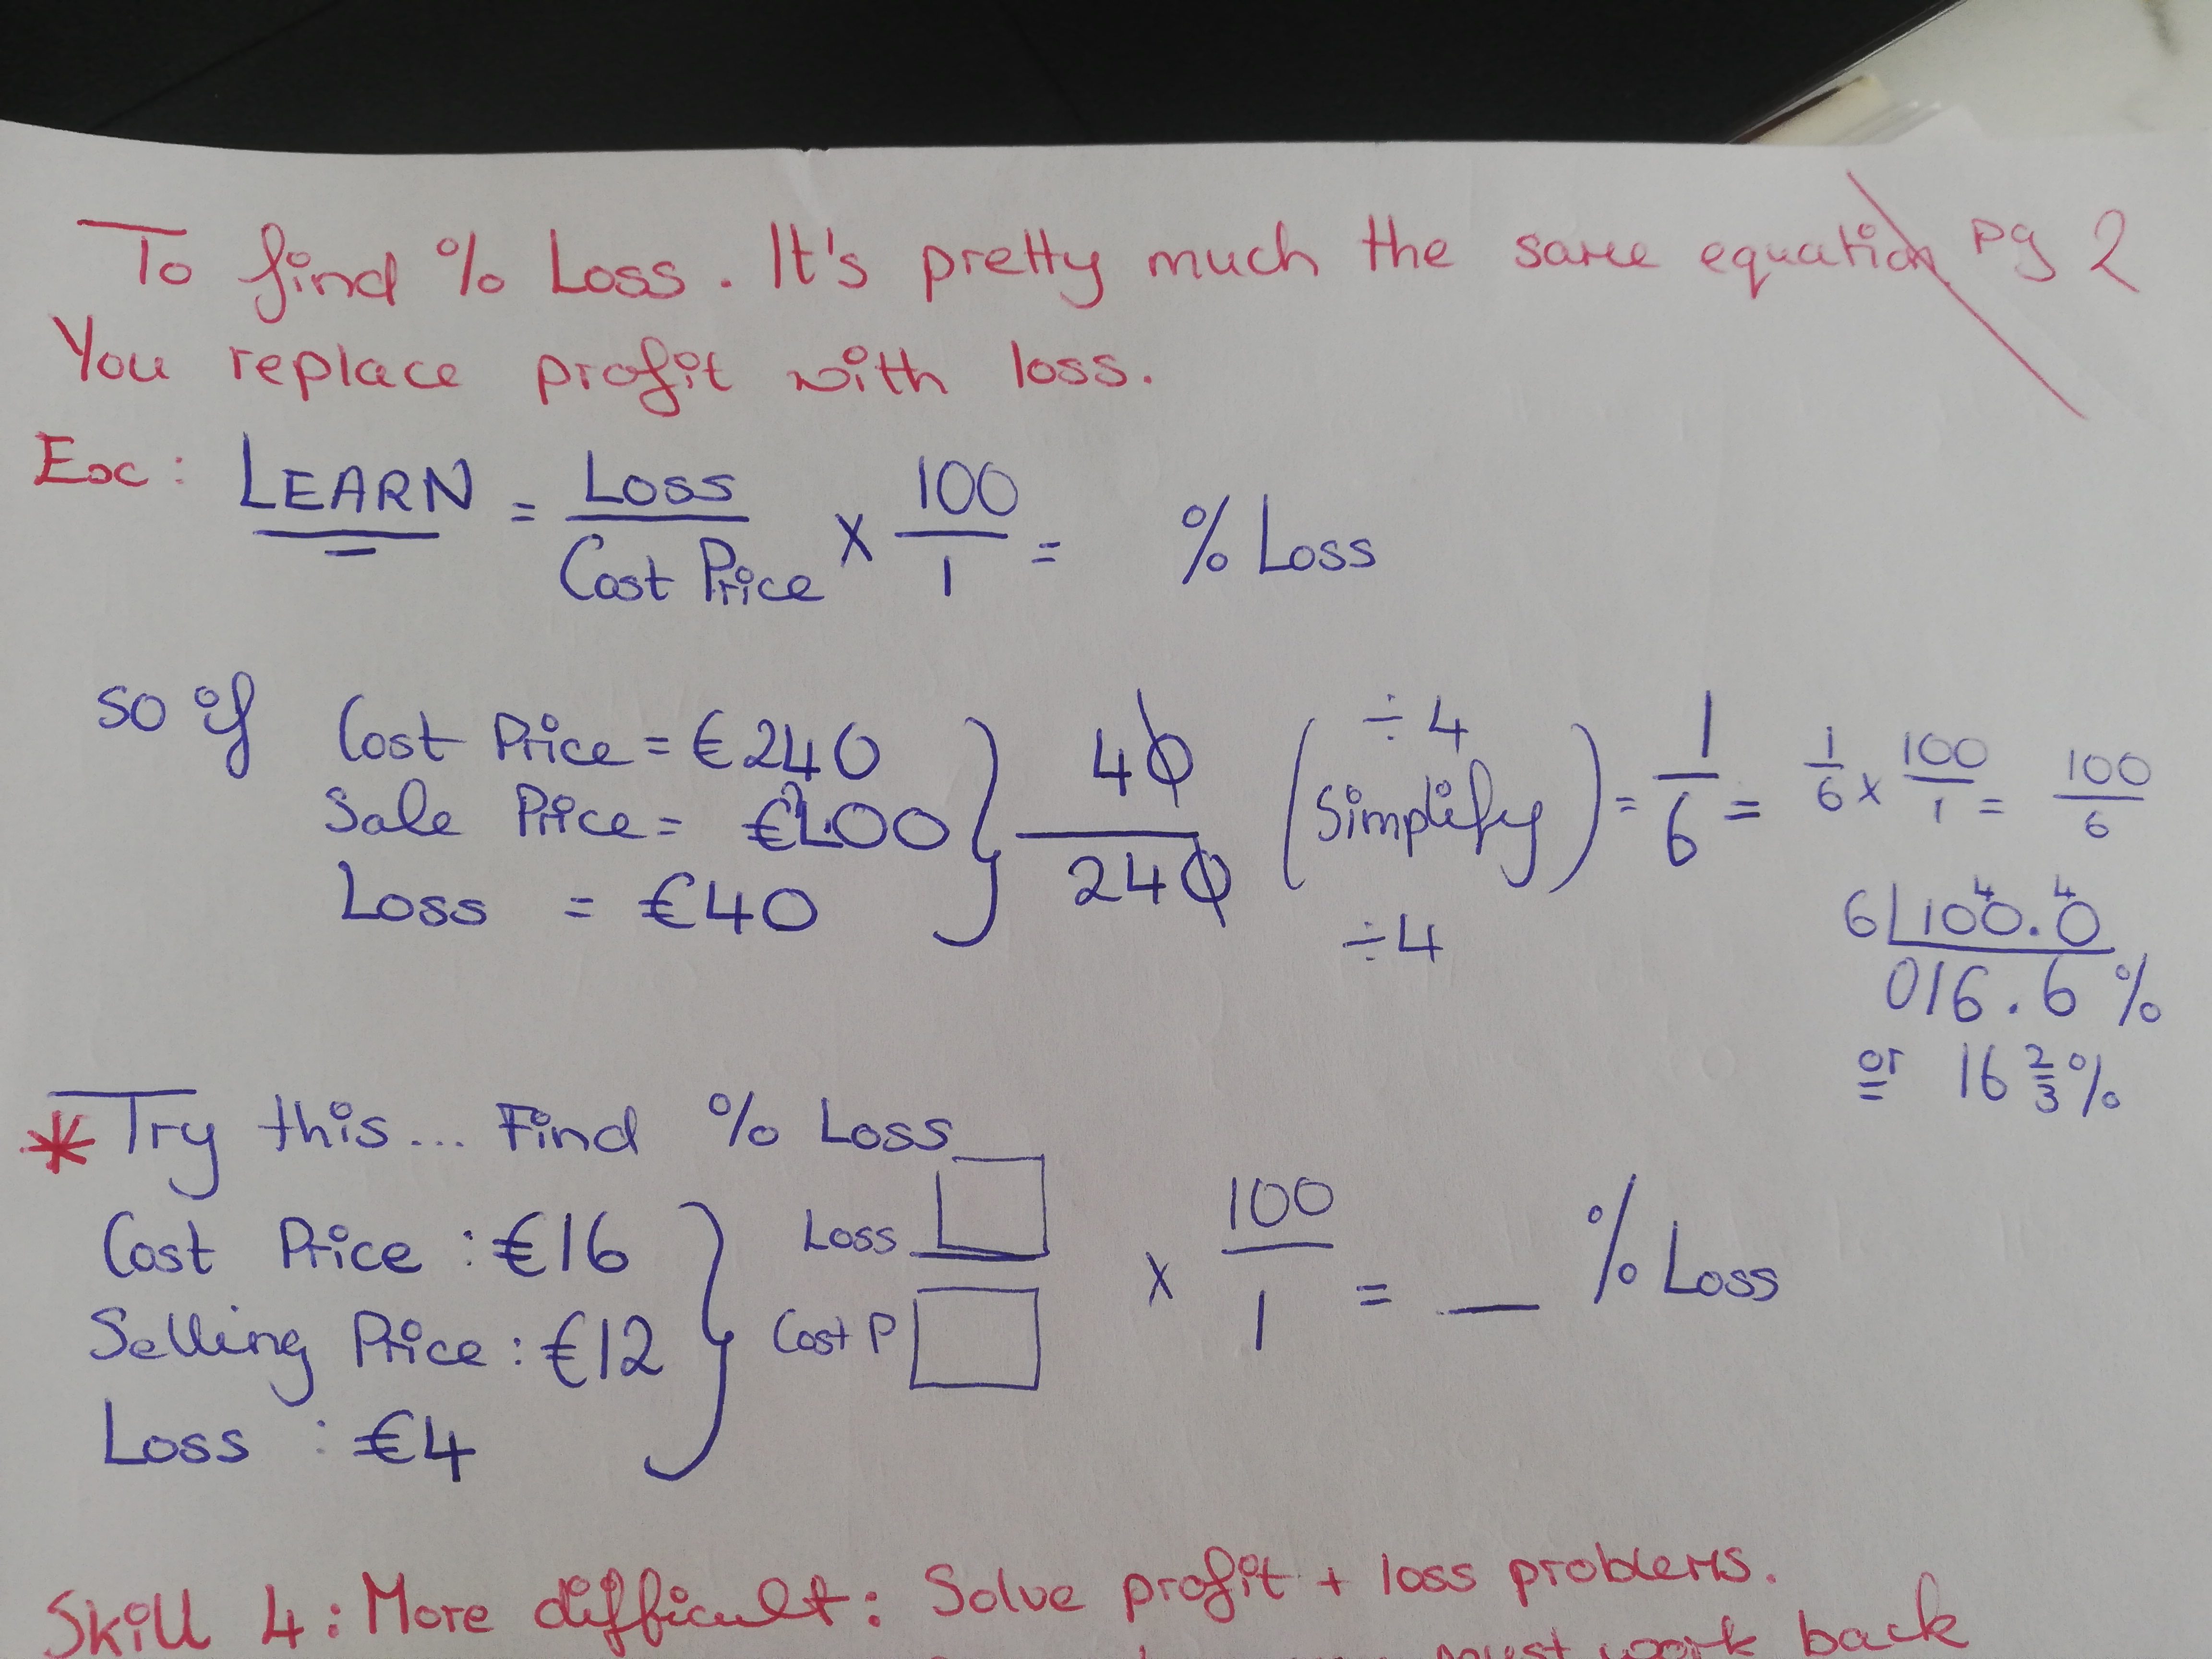 To find % Loss. It's pretty much the same equation pg 2
You replace profit with loss.
Ex: LEARN = Loss / Cost Price x 100 / 1 = % Loss
so if Cost Price = €240 } 40 / 240 ( ÷4 Simplify ÷4 ) = 1/6 = 1/6 x 100/1 = 100/6
Sale Price = €200
Loss = €40
6 100.0
016.6 %
or 16 2/3 %
* Try this... Find % Loss
Cost Price : €16 } Loss / Cost P x 100 / 1 = __ % Loss
Selling Price : €12
Loss : €4
Skill 4: More difficult: Solve profit + loss problems.
must work back